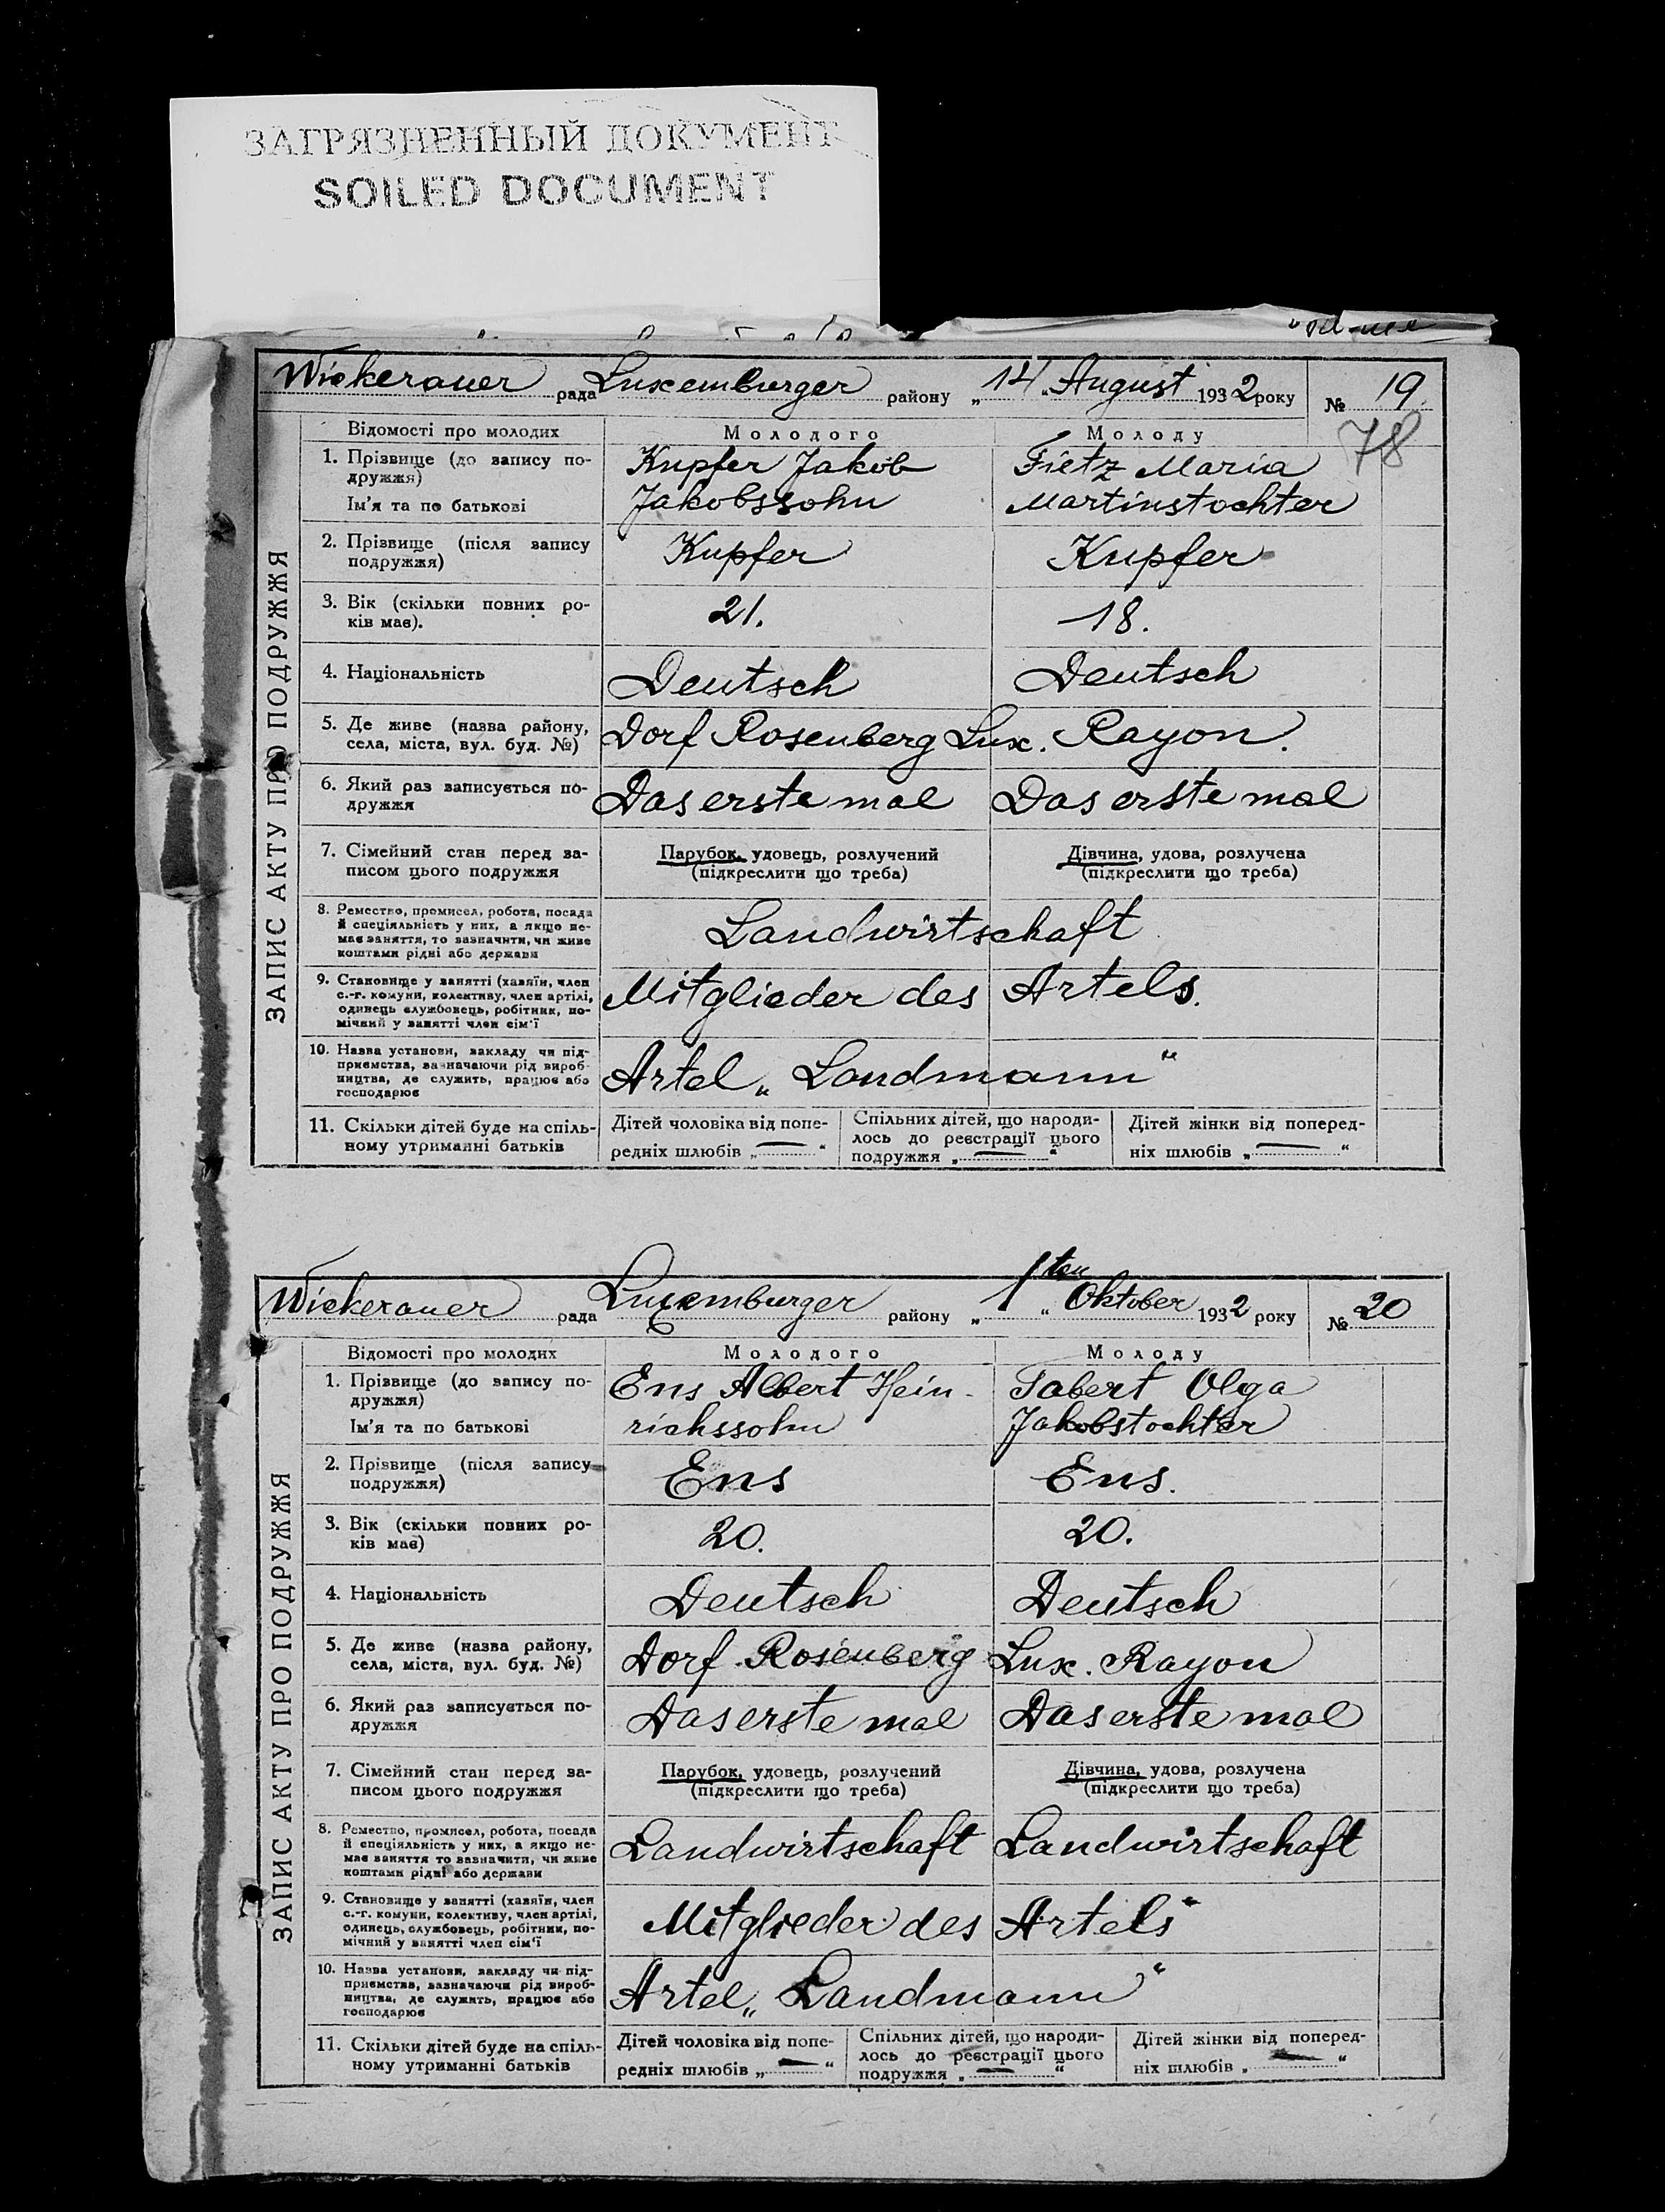 ЗАГРЯЗНЕННЫЙ ДОКУМЕНТ
SOILED DOCUMENT
Wickerauer рада Luxemburger району „14“ August 1932 року № 19
78
ЗАПИС АКТУ ПРО ПОДРУЖЖЯ
Відомості про молодих Молодого Молоду
1. Прізвище (до запису по-
дружжя)
Ім'я та по батькові
Kupfer Jakob
Jakobssohn
Fietz Maria
Martinstochter
2. Прізвище (після запису
подружжя)
Kupfer Kupfer
3. Вік (скільки повних ро-
ків має).
21. 18.
4. Національність Deutsch Deutsch
5. Де живе (назва району,
села, міста, вул. буд. №)
Dorf Rosenberg Lux. Rayon.
6. Який раз записується по-
дружжя
Das erste mal Das erste mal
7. Сімейний стан перед за-
писом цього подружжя
Парубок, удовець, розлучений
(підкреслити що треба)
Дівчина, удова, розлучена
(підкреслити що треба)
8. Ремество, промисел, робота, посада
й спеціяльність у них, а якщо не-
має заняття, то зазначити, чи живе
коштами рідні або держави
Landwirtschaft
9. Становище у занятті (хазяїн, член
с.-г. комуни, колективу, член артілі,
одинець службовець, робітник, по-
мічний у занятті член сім'ї
Mitglieder des Artels.
10. Назва установи, закладу чи під-
приємства, зазначаючи рід вироб-
ництва, де служить, працює або
господарює
Artel „Landmann“
11. Скільки дітей буде на спіль-
ному утриманні батьків
Дітей чоловіка від попе-
редніх шлюбів „—“
Спільних дітей, що народи-
лось до реєстрації цього
подружжя „—“
Дітей жінки від поперед-
ніх шлюбів „—“
Wickerauer рада Luxemburger району „1ten“ Oktober 1932 року № 20
ЗАПИС АКТУ ПРО ПОДРУЖЖЯ
Відомості про молодих Молодого Молоду
1. Прізвище (до запису по-
дружжя)
Ім'я та по батькові
Ens Albert Hein-
richssohn
Tabert Olga
Jakobstochter
2. Прізвище (після запису
подружжя)
Ens Ens.
3. Вік (скільки повних ро-
ків має)
20. 20.
4. Національність Deutsch Deutsch
5. Де живе (назва району,
села, міста, вул. буд. №)
Dorf Rosenberg Lux. Rayon
6. Який раз записується по-
дружжя
Das erste mal Das erste mal
7. Сімейний стан перед за-
писом цього подружжя
Парубок, удовець, розлучений
(підкреслити що треба)
Дівчина, удова, розлучена
(підкреслити що треба)
8. Ремество, промисел, робота, посада
й спеціяльність у них, а якщо не-
має заняття то зазначити, чи живе
коштами рідні або держави
Landwirtschaft Landwirtschaft
9. Становище у занятті (хазяїн, член
с.-г. комуни, колективу, член артілі,
одинець, службовець, робітник, по-
мічний у занятті член сім'ї
Mitglieder des Artels
10. Назва установи, закладу чи під-
приємства, зазначаючи рід вироб-
ництва, де служить, працює або
господарює
Artel „Landmann“
11. Скільки дітей буде на спіль-
ному утриманні батьків
Дітей чоловіка від попе-
редніх шлюбів „—“
Спільних дітей, що народи-
лось до реєстрації цього
подружжя „—“
Дітей жінки від поперед-
ніх шлюбів „—“